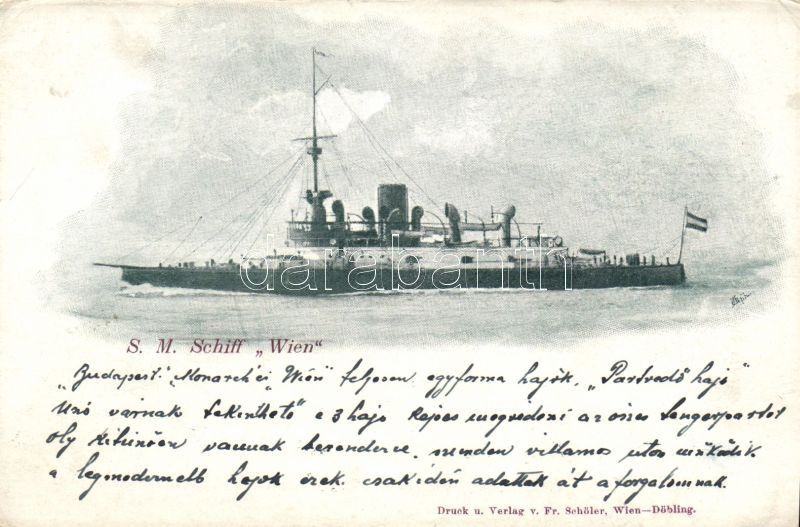 darabanth
S. M. Schiff „Wien“
„Budapest" „Monarch és „Wien" teljesen egyforma hajók. „Partvedő hajó"
úszó várnak tekinthető e 3 hajó képes megvédeni az összes tengerpartot
oly kitünően vannak berendezve. minden villamos uton müködik.
a legmodernebb hajók ezek. csak idén adattak át a forgalomnak.
Druck u. Verlag v. Fr. Schöler, Wien—Döbling.